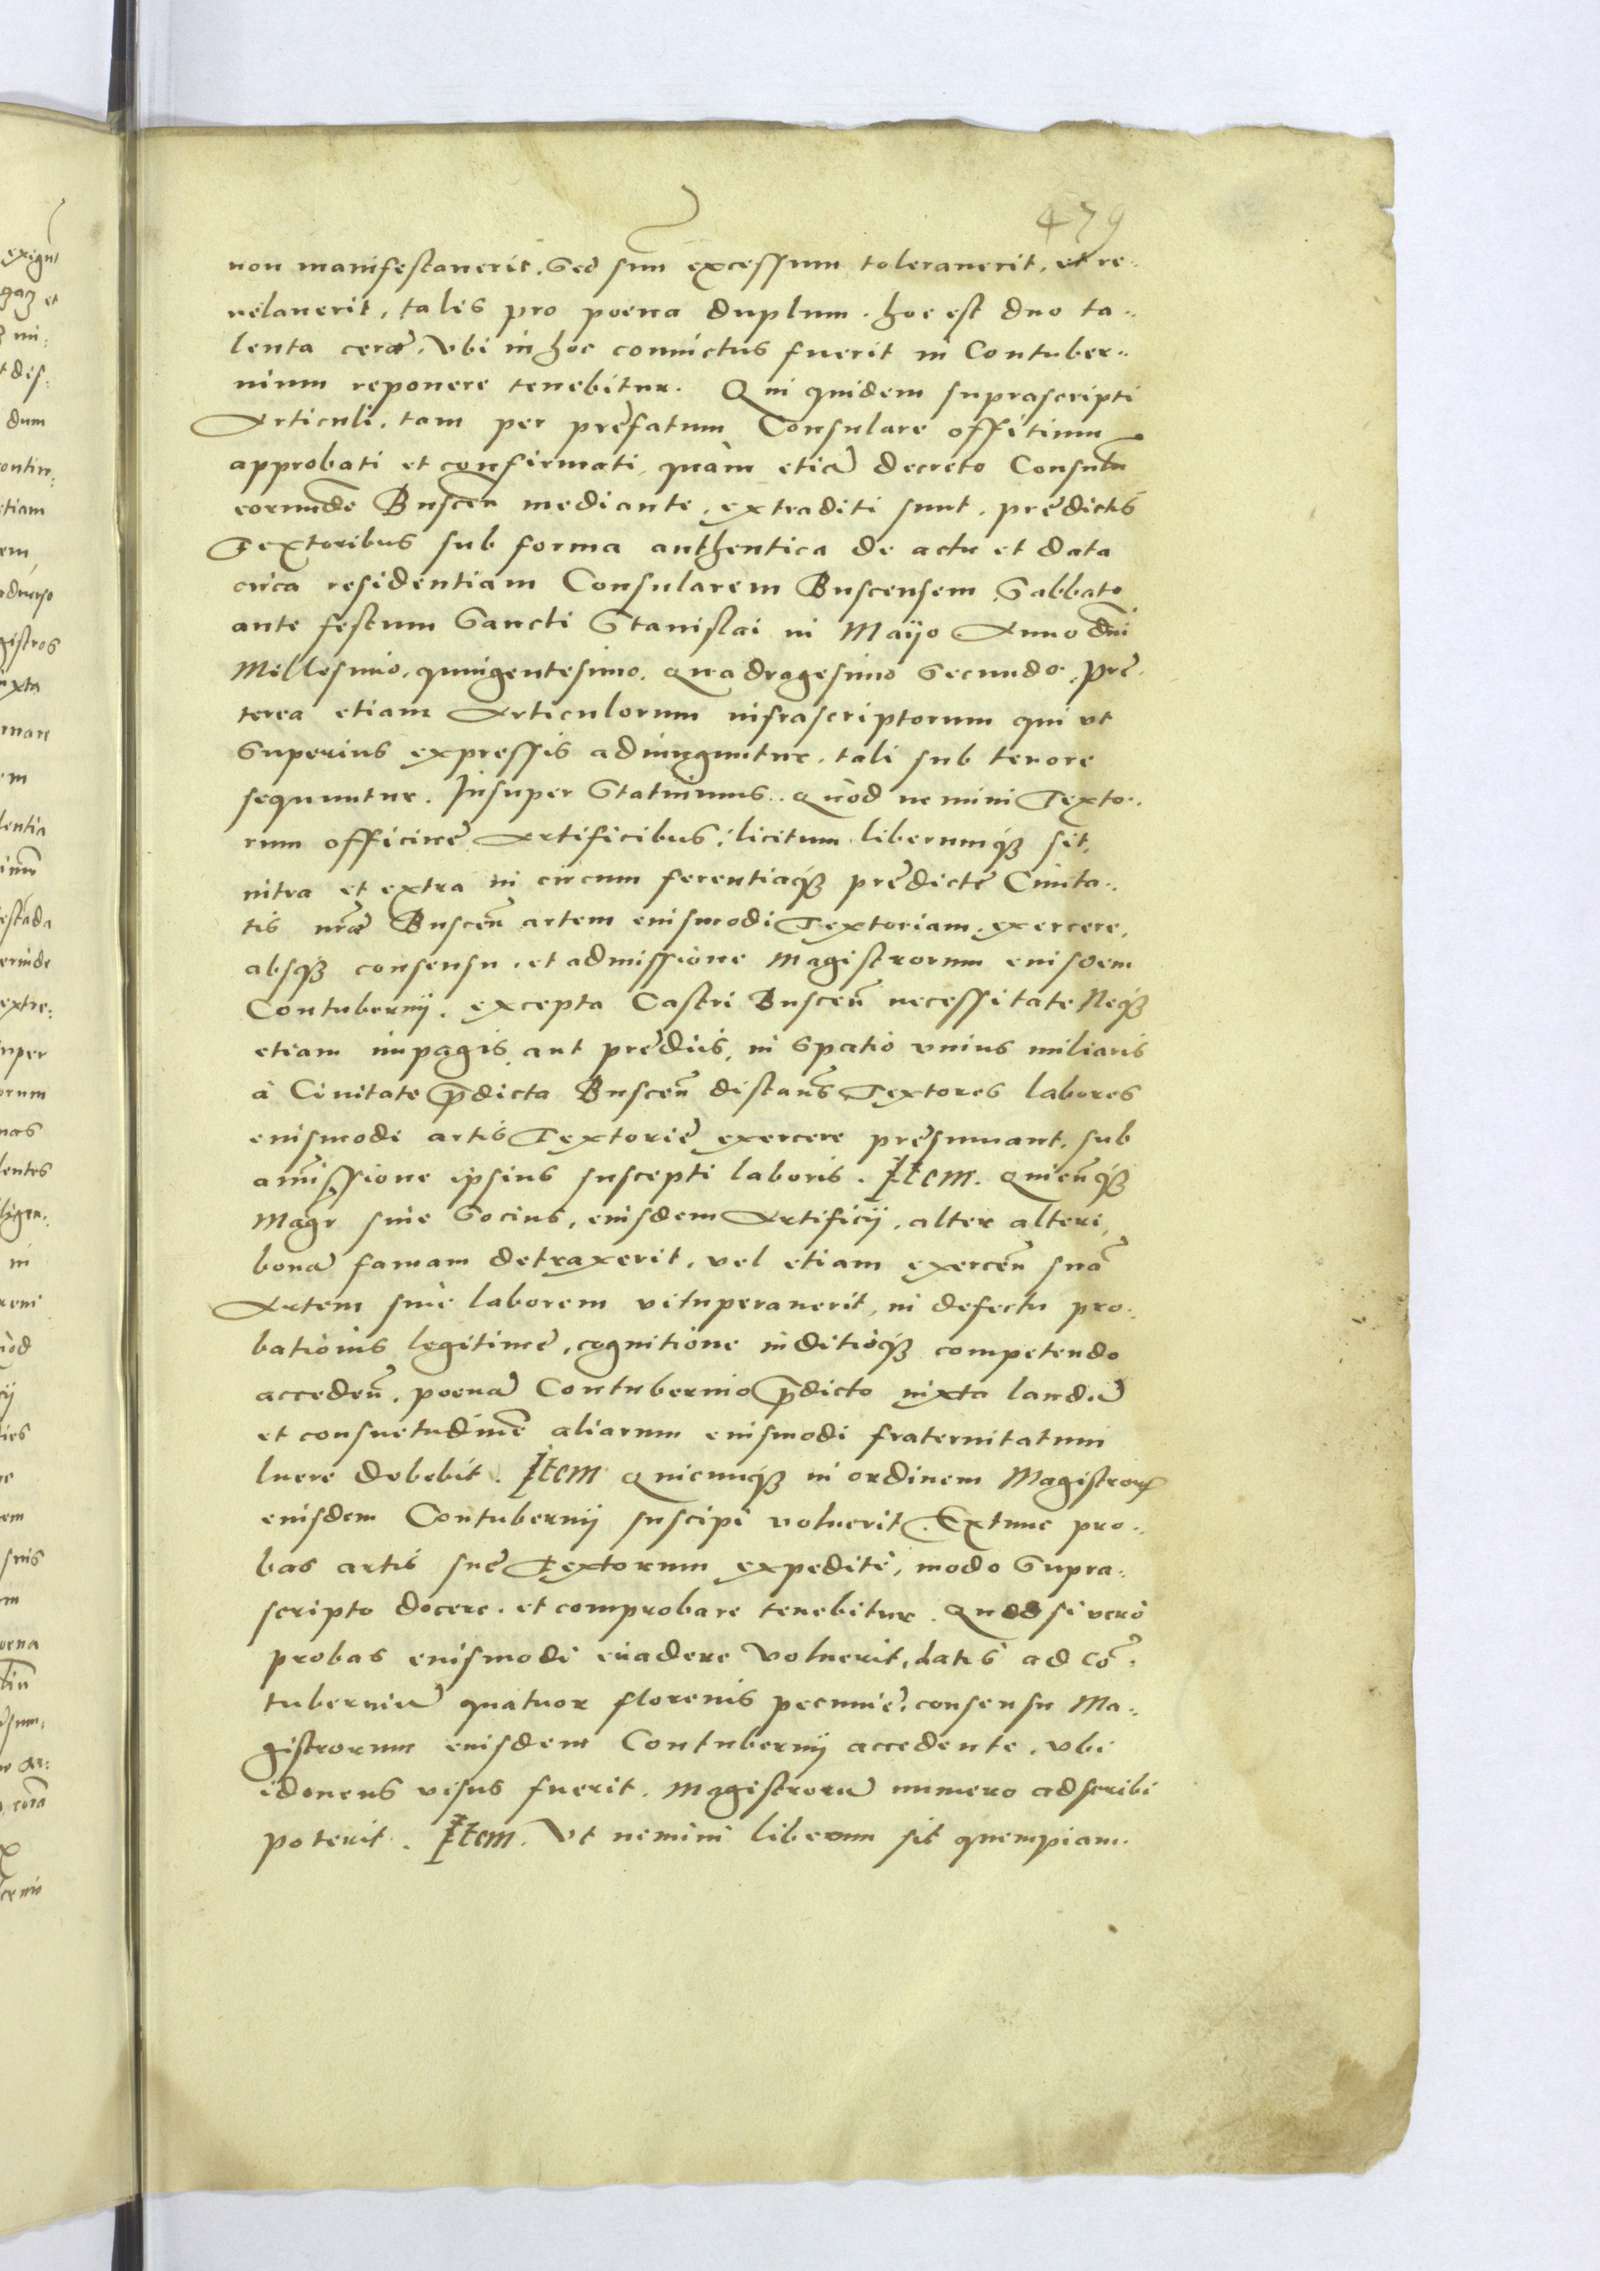 479
non manifestauerit. Sed suū excessum tolerauerit, et re-
uelauerit, tales pro poena duplum. hoc est duo ta-
lenta ceræ. Vbi in hoc conuictus fuerit in Contuber-
nium reponere tenebitur. Qui quidem suprascripti
Articuli, tam per prefatum Consulare offitium
approbati et confirmati, quàm etiā decreto Consulū
eorundē Buscen̄ mediante, extraditi sunt, prędictis
Textoribus sub forma authentica de actu et data
circa residentiam Consularem Buscensem, Sabbato
ante festum Sancti Stanislai in Maijo Anno dn̄i
Millesimo, quingentesimo, quadragesimo Secundo. Prę-
terea etiam Articulorum infrascriptorum qui vt
Superius expressis adiunguntur, tali sub tenore
sequuntur. Insuper Statuimus. quod nemini Texto-
rum officinę Artificibus, licitum liberumq́ꝫ sit,
intra et extra in circum ferentiaq́ꝫ prędictę Ciuita-
tis nr̄æ Buscen̄ artem eiusmodi Textoriam, exercere,
absq́ꝫ consensu, et admissione Magistrorum eiusdem
Contubernij, excepta Castri Buscen̄ necessitate Neq́ꝫ
etiam in pagis, aut prędiis, in spatio vnius miliaris
à Ciuitate p̄dicta Buscen̄ distan̄s Textores labores
eiusmodi artis Textorię exercere pręsumant, sub
amissione ipsius suscepti laboris. Item. quicunq́ꝫ
Magr̄ siue Socius, eiusdem Artificij, alter alteri,
bonā famam detraxerit, vel etiam exercen̄ suā
Artem siue laborem vituperauerit, in defectu pro-
bationis legitimę, cognitione inditioq́ꝫ competendo
acceden̄, poenā Contubernio p̄dicto iuxta laudū
et consuetudinē aliarum eiusmodi fraternitatum
luere debebit. Item quicunq́ꝫ in ordinem Magistroꝝ
eiusdem Contubernij suscipi voluerit. Extunc pro-
bas artis suę Textorum expeditè, modo Supra-
scripto docere, et comprobare tenebitur. Quod si verò
probas eiusmodi euadere voluerit, datis ad Cō-
tuberniū quatuor florenis pecunię, consensu Ma-
gistrorum eiusdem Contubernij accedente, vbi
idoneus visus fuerit, Magistrorū numero adscribi
poterit. Item. Vt nemini liberum sit quempiam